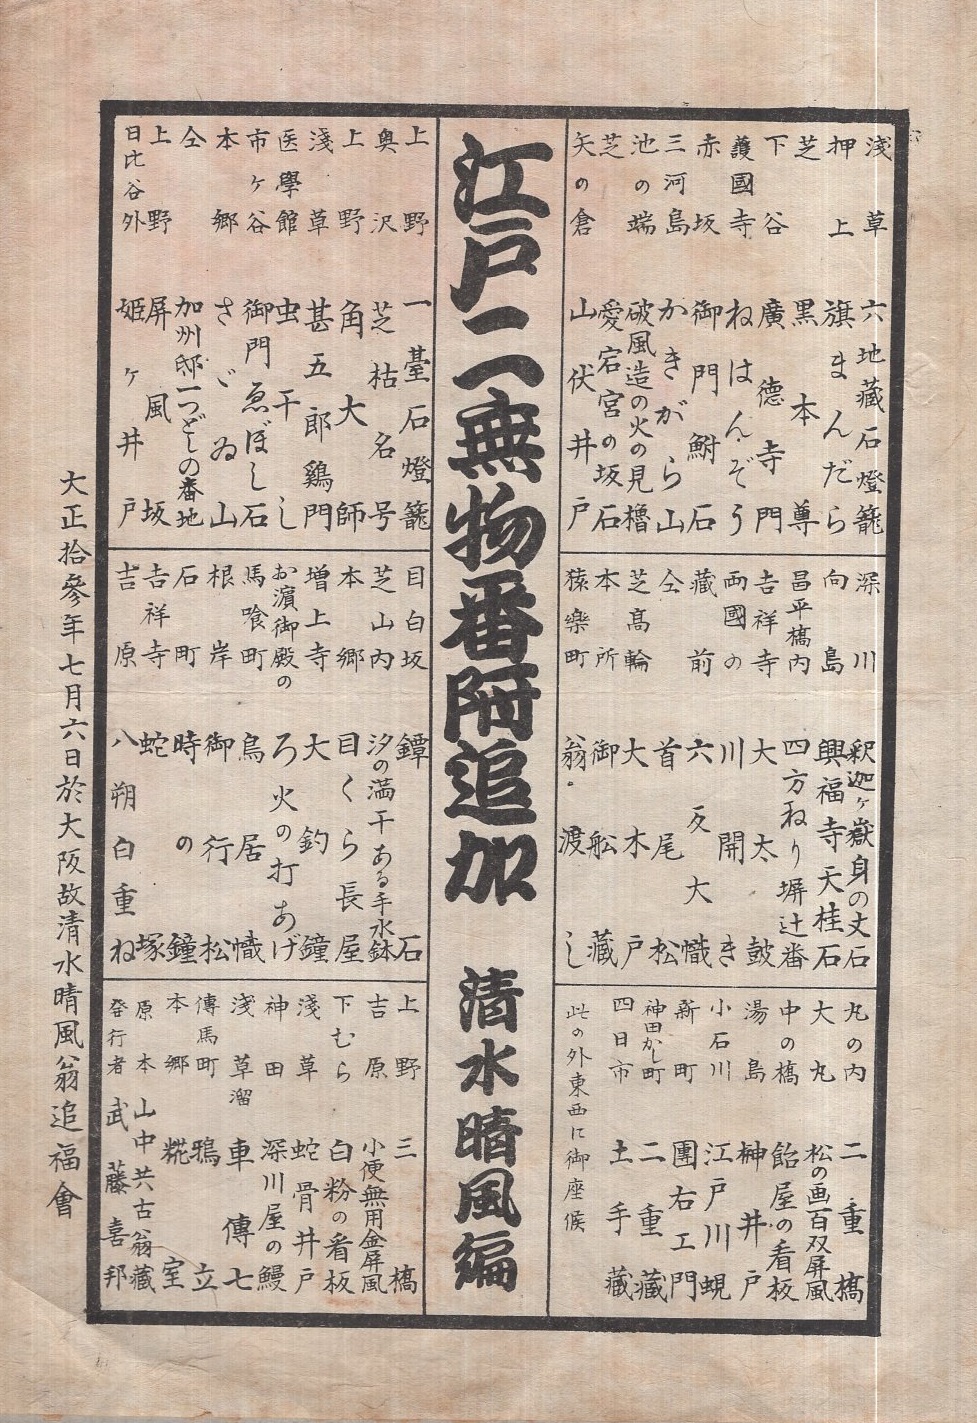 江戸二無物番附追加　清水晴風編
浅草　六地藏石燈籠
押上　旗まんだら
芝　黒本尊
下谷　廣德寺門
護國寺　ねはんぞう
赤坂　御門鮒石
三河島　かきがら山
池の端　破風造の火の見櫓
芝　愛宕宮の坂石
矢の倉　山伏井戸
深川　釈迦ヶ嶽身の丈石
向島　興福寺天桂石
昌平橋内　四方ねり塀辻番
吉祥寺　大太鼓
両國の　川開き
藏前　六反大幟
仝　首尾松
芝髙輪　大木戸
本所　御舩藏
猿楽町　翁渡し
丸の内　二重橋
大丸　松の画百双屏風
中の橋　飴屋の看板
湯島　榊井戸
小石川　江戸川蜆
新町　團右エ門
神田かし町　二重藏
四日市　土手藏
此の外東西に御座候
上野　一臺石燈籠
奥沢　芝枯名号
上野　角大師
淺草　甚五郎鷄門
医學館　虫干し
市ヶ谷　御門ゑぼし石
本郷　さゞゐ山
仝　加州邸一つどしの番地
上野　屏風坂
日比谷外　姫ヶ井戸
目白坂　鐔石
芝山内　汐の満干ある手水鉢
本郷　目くら長屋
増上寺　大釣鐘
お濱御殿の　ろ火の打あげ
馬喰町　鳥居幟
根岸　御行松
石町　時の鐘
吉祥寺　蛇塚
吉原　八朔白重ね
上野　三橋
吉原　小便無用金屏風
下むら　白粉の看板
淺草　蛇骨井戸
神田　深川屋の鰻
淺草溜　車傳七
傳馬町　鴉立
本郷　糀室
原本　山中共古翁藏
発行者　武藤喜邦
大正拾參年七月六日於大阪故清水晴風翁追福會